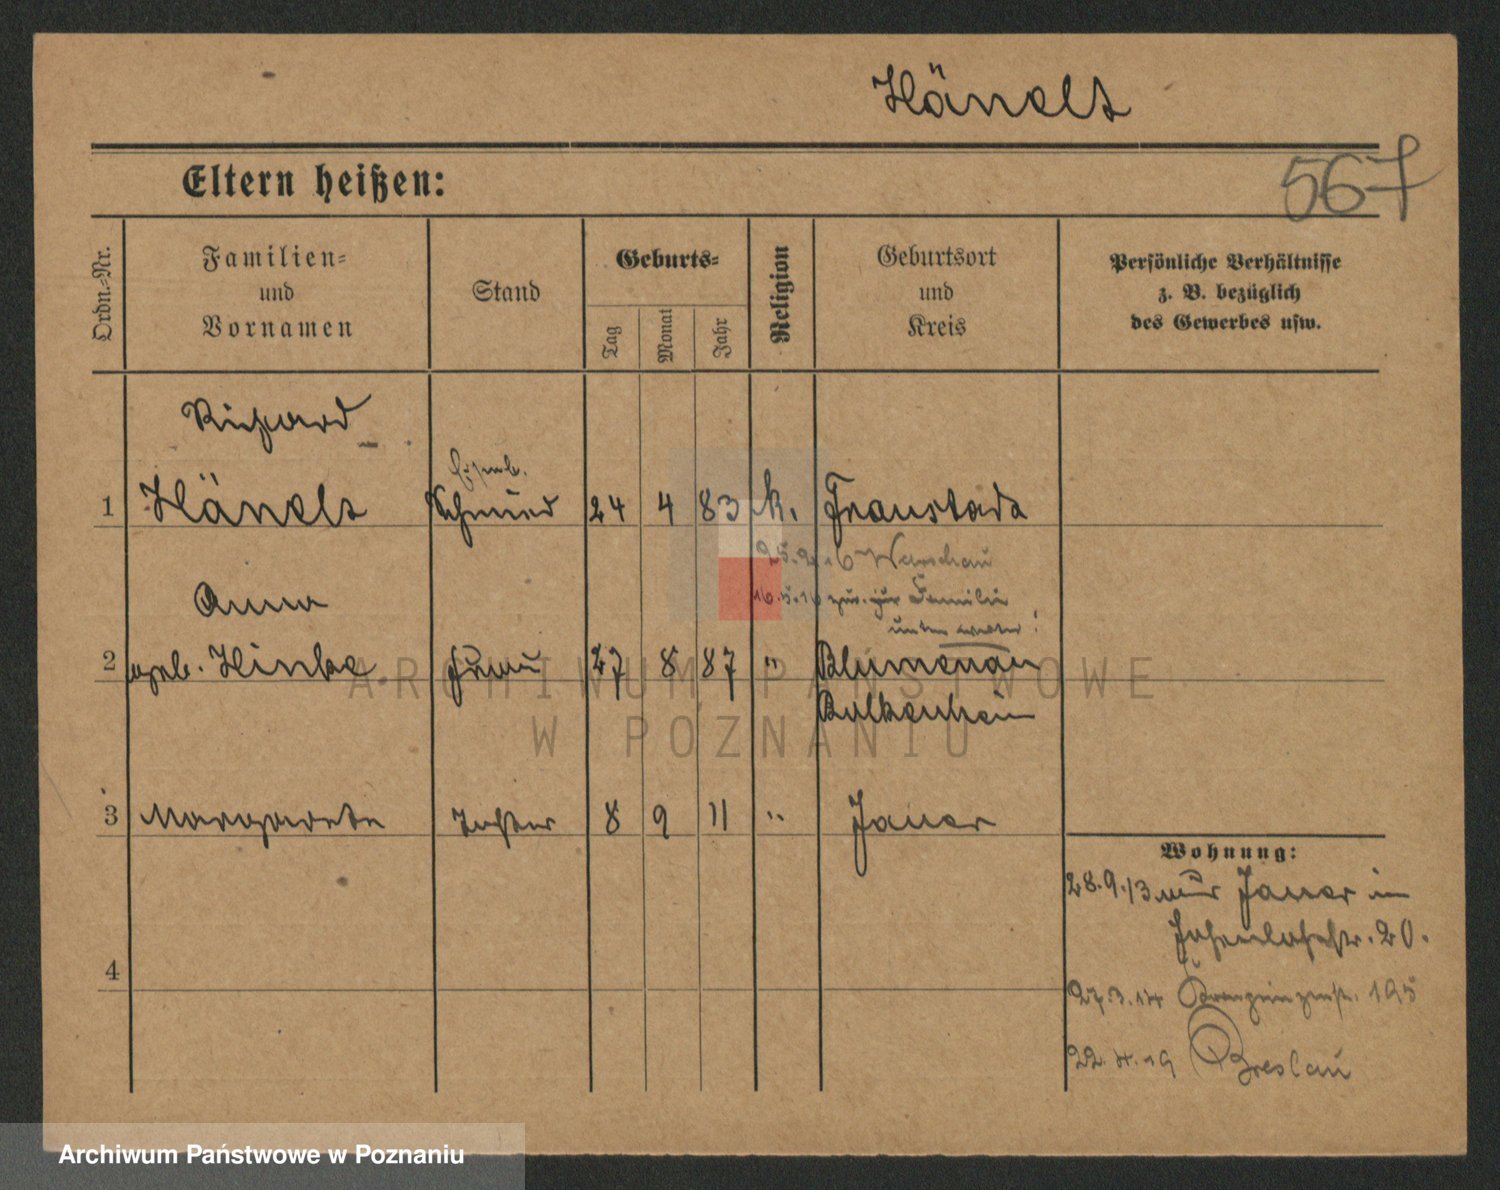 Hänelt
567
Eltern heißen:
Ordn.-Nr.
Familien-
und
Vornamen
Stand
Geburts-
Tag
Monat
Jahr
Religion
Geburtsort
und
Kreis
Persönliche Verhältnisse
z. B. bezüglich
des Gewerbes usw.
Richard
Eisenb.
1 Hänelt Schmied 24 4 83 k. Fraustadt
25.2.16 Warschau
16.5.16 zur Familie
unten
Anna
2 geb. Hinke Frau 27 8 87 " Blumenau
Bolkenhain
3 Margarete Tochter 8 9 11 " Jauer
Wohnung:
28.9.13 Jauer in
20.
4
27.3.14 Kronprinzenstr. 195
22.4.19 Breslau
ARCHIWUM PAŃSTWOWE
W POZNANIU
Archiwum Państwowe w Poznaniu